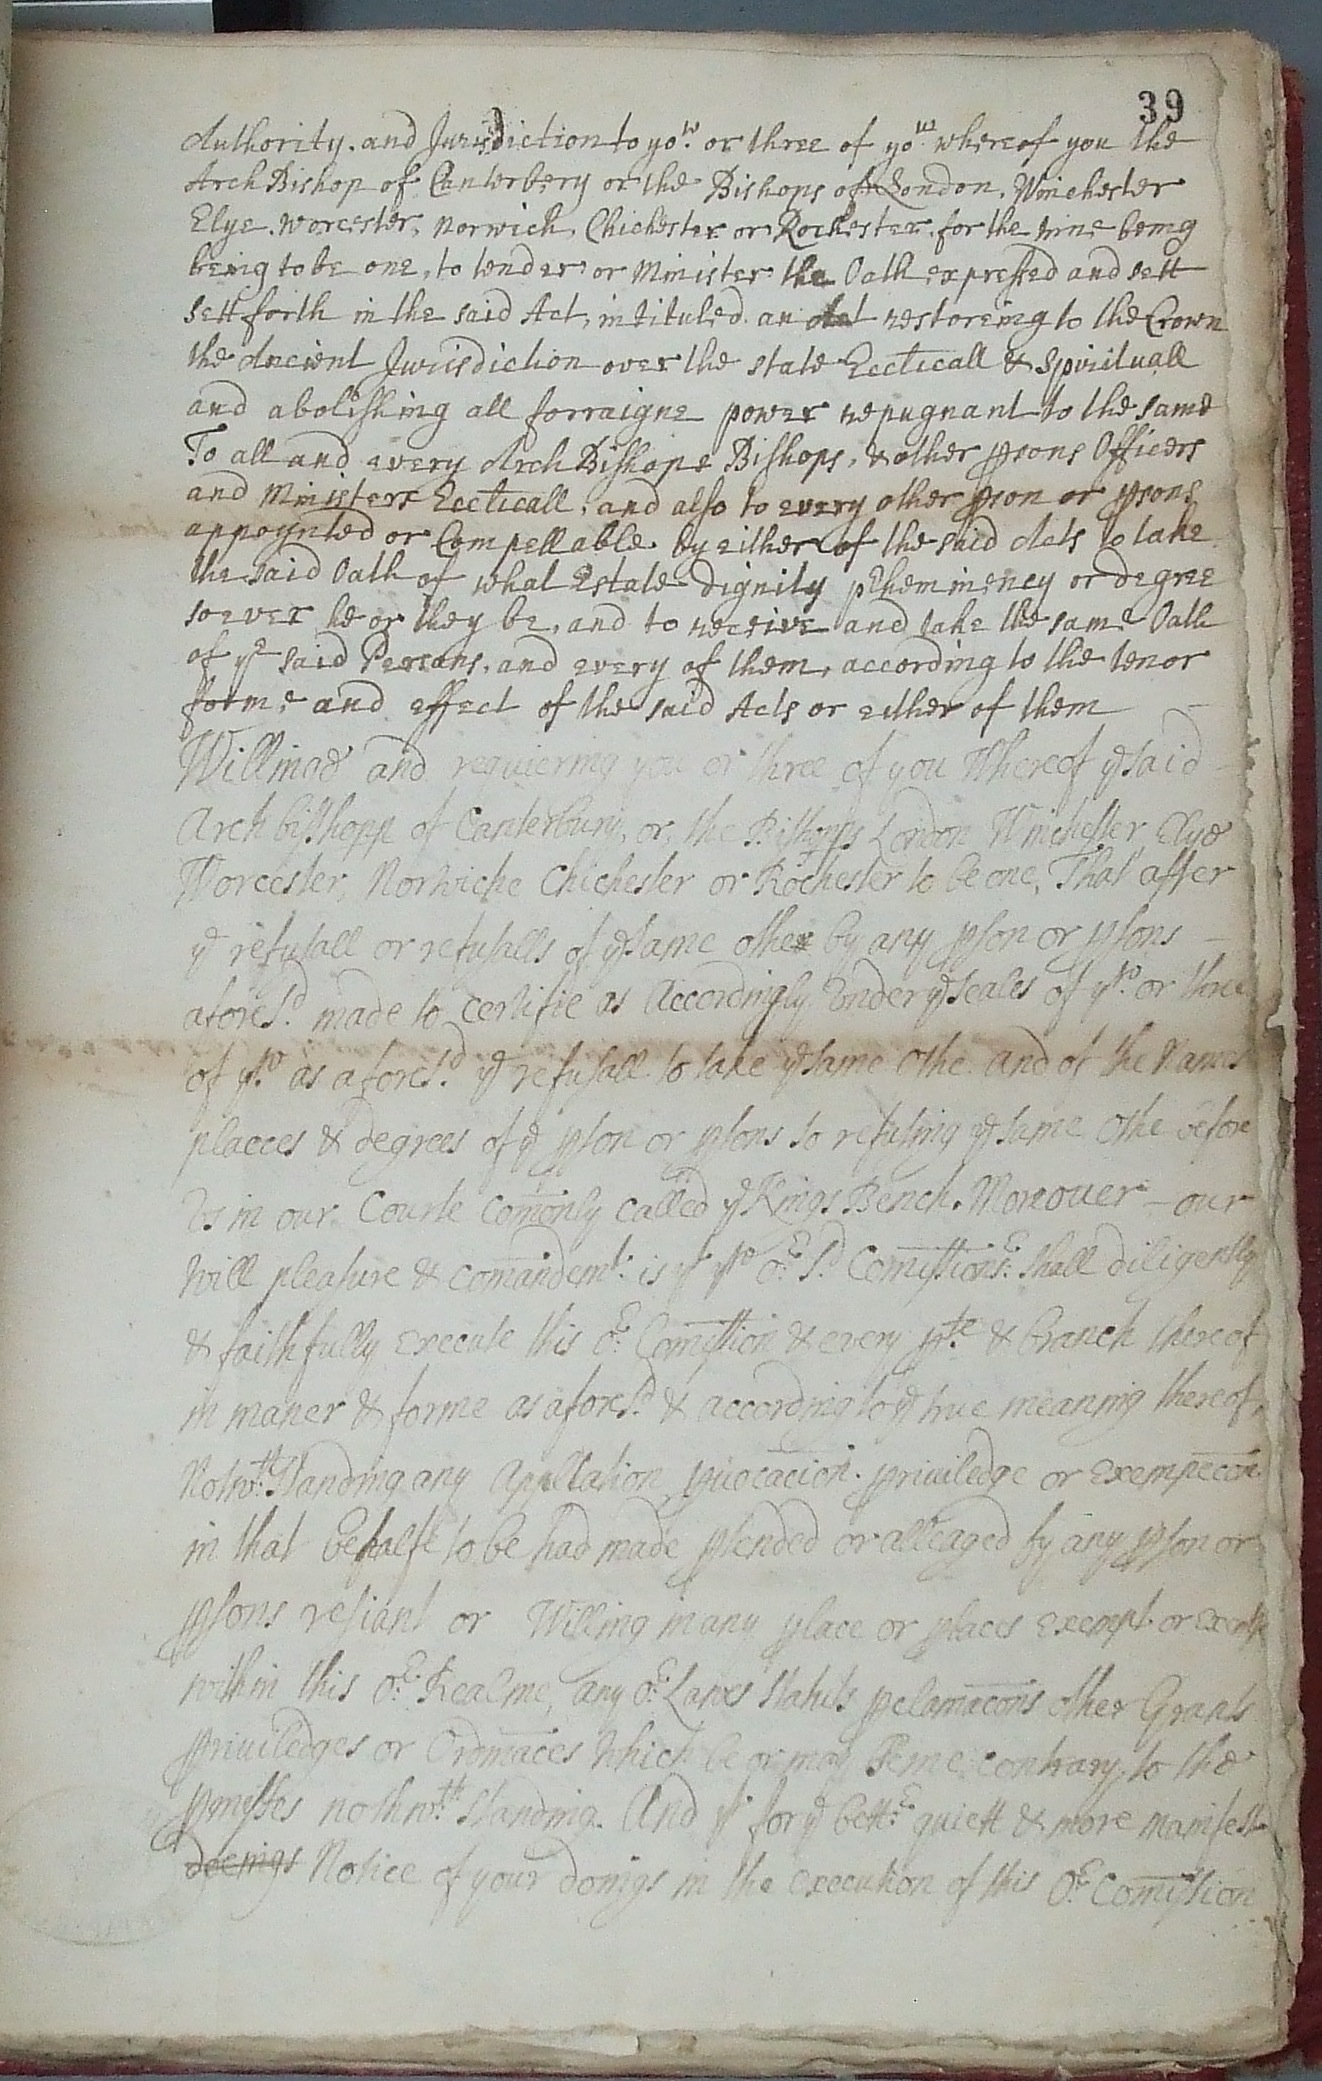 39
Authority. and Jurisdiction to yo.w or three of yo.w whereof you the
ArchBishop of Canterbery or the Bishops of London, Winchester
Elye. Worcester, Norwich, Chichester or Rochester. for the time being
being to be one, to tender or Minister the Oath expressed and sett
sett forth in the said Act, intituled an Act restoreing to the Crown
the Ancient Jurisdiction over the state Eccticall & Spirituall
and abolishing all forraigne power repugnant to the same
To all and every ArchBishops Bishops, & other psons Officers
and Ministers Eccticall, and also to every other pson or psons
appoynted or Compellable by either of the said Acts to take
the said Oath of what Estate dignity pheminency or degree
soever he or they be, and to receive and take the same Oath
of ye said Persons, and every of them, according to the tenor
forme and effect of the said Acts or either of them
and requiering you or three of you Whereof ye said
Arch bishopp of Canterbury, or, the Bishopps London Winchester Elye
Worcester, Norwiche Chichester or Rochester to be one, That after
ye refusall or refusalls of ye same othe by any pson or psons
afores.d made to certifie as Accordingly Under ye seales of yo. or three
of yo. as afores.d ye refusall to take ye same Othe. and of the Names
placces & degrees of ye pson or psons so refusing ye same Othe before
Us in our Courte Comonly called ye Kings Bench. Moreouer - our
Will pleasure & comandemt. is yt yo o.r s.d Comissions.r shall diligently
& faithfully execute this o.r Comission & every p.te & branch thereof
in maner & forme as afores.d & according to ye true meaning thereof,
Notw.th standing any Appellation pvocacion. priuiledge or exempecon
in that behalfe to be had made ptended or alleaged by any pson or
psons resiant or Willing in any place or places exempt or
within this o.r Realme, any o.r Lawes statuts pclamacons other Grants
priuiledges or Ordinaces which be or may seme contrary to the
pmisses nothw.th standing. And yt for ye bett.r quiett & more manifest
doeings Notice of your doings in the execution of this o.r Comission